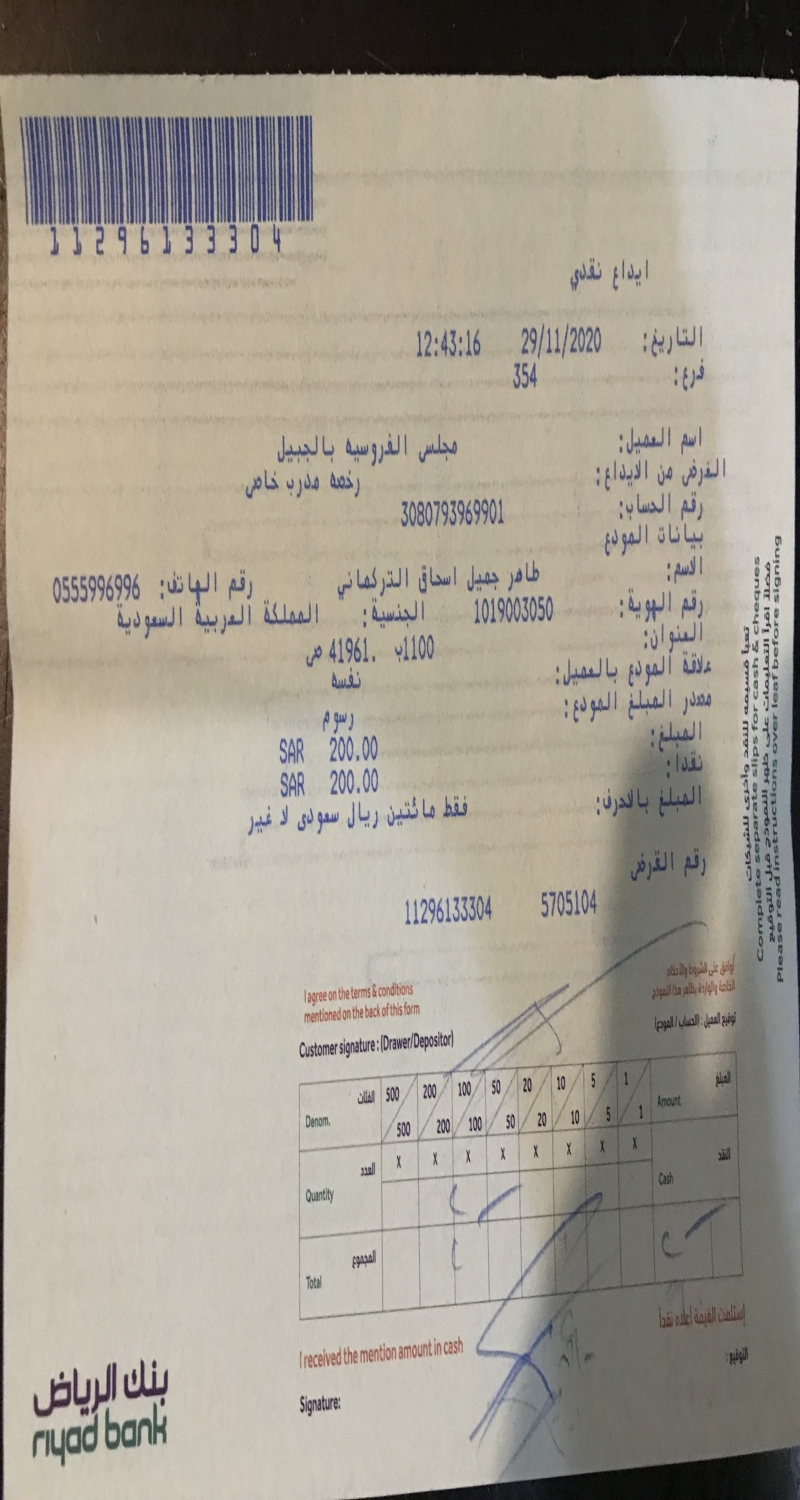 11296133304
ايداع نقدي
التاريخ: 29/11/2020 12:43:16
فرع: 354
اسم العميل: مجلس الفروسيه بالجبيل
الغرض من الايداع: رخصه مدرب خاص
رقم الحساب: 3080793969901
بيانات المودع
الاسم: طاهر جميل اسحاق التركماني رقم الهاتف: 0555996996
رقم الهوية: 1019003050 الجنسية: المملكة العربية السعودية
العنوان: 1100ب .41961 ص
علاقة المودع بالعميل: نفسه
مصدر المبلغ المودع: رسوم
المبلغ: SAR 200.00
نقدا: SAR 200.00
المبلغ بالاحرف: فقط مائتين ريال سعودى لا غير
رقم القرض
5705104 11296133304
تعبأ قسيمه للنقد وأخرى للشيكات
Complete separate slips for cash & cheques
فضلاً اقرأ التعليمات على ظهر النموذج قبل التوقيع
Please read instructions over leaf before signing
أوافق على الشروط والأحكام
الخاصة والواردة بظاهر هذا النموذج
I agree on the terms & conditions
mentioned on the back of this form
توقيع العميل : (الحساب / المودع)
Customer signature : (Drawer/Depositor)
Denom. الفئات 500 200 100 50 20 10 5 1 Amount المبلغ
500 200 100 50 20 10 5 1
Quantity العدد X X X X X X X X Cash النقد
Total المجموع
إستلمت القيمة أعلاه نقداً
I received the mention amount in cash
التوقيع :
Signature:
بنك الرياض
riyad bank